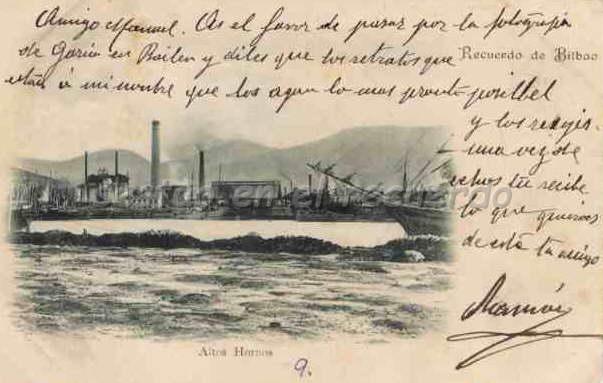 Amigo Manuel. As el favor de pasar por la fotografia
de Garcia en Bailen y diles que los retratos que
estan á mi nombre que los agan lo mas pronto posibbel
Recuerdo de Bilbao
y los recojis
una vez de
echos tu recibe
lo que quieras
de este tu amigo
Ramón
Altos Hornos
9.